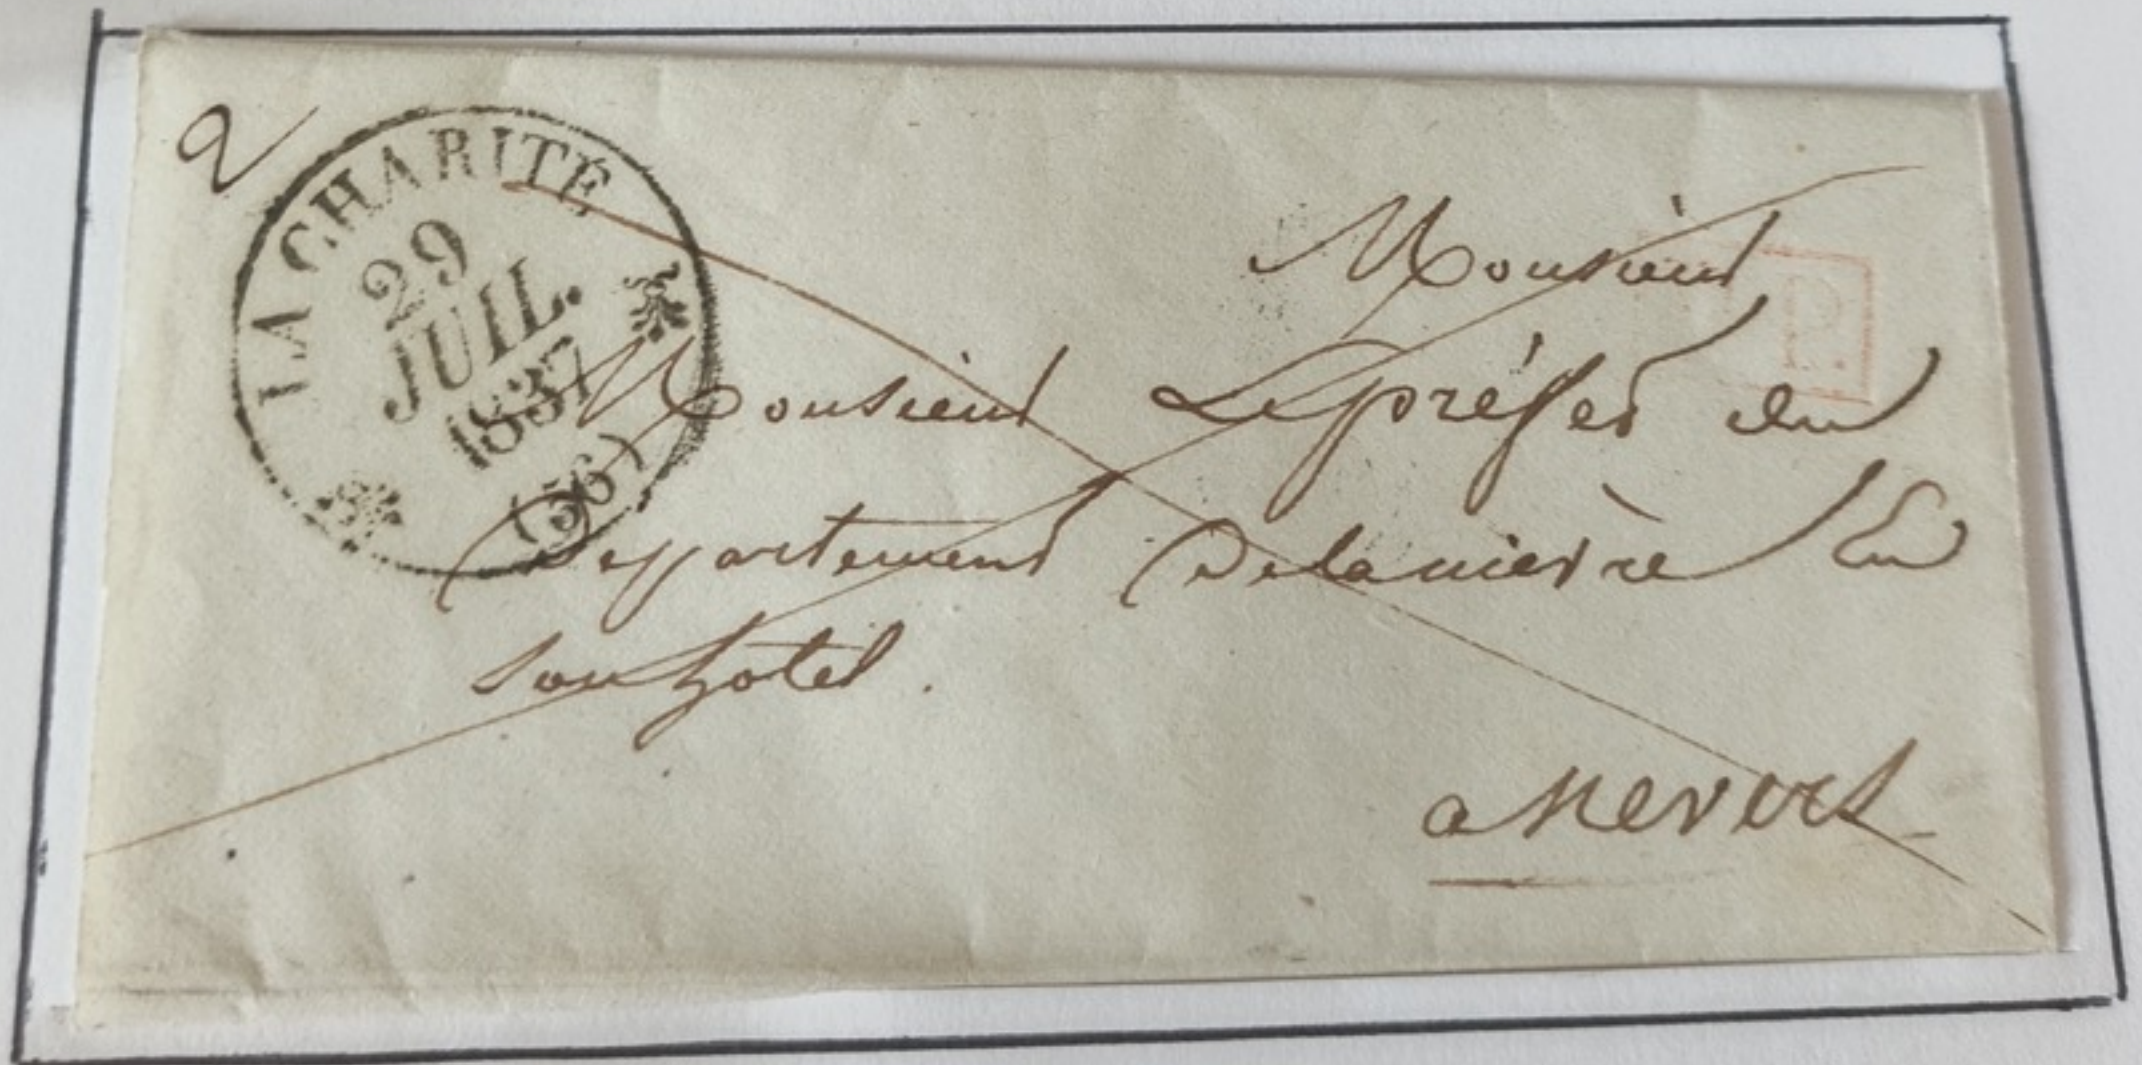 2
LA CHARITÉ
29
JUIL.
1837
(56)
P.
Monsieur
Monsieur Le préfet du
Departement Delanievre En
son hotel.
a Nevers